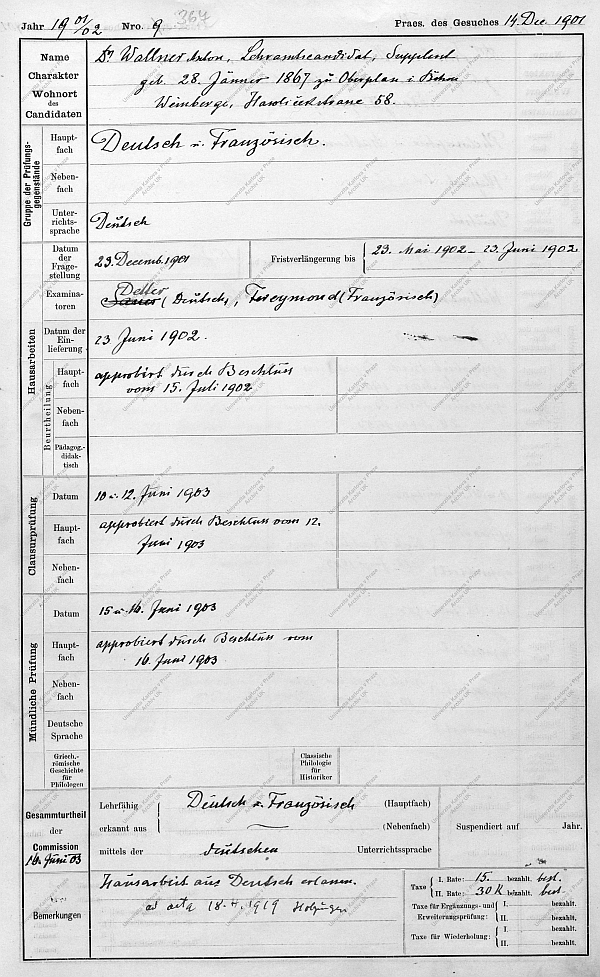 Jahr 1901/02 Nro. 9 367 Praes. des Gesuches 14 Dec 1901
Name
Charakter
Wohnort
des
Candidaten
Dr Wallner Anton, Lehramtscandidat, Supplent
geb. 28. Jänner 1867 zu Oberplan in Böhmen
Weinberge, 58.
Gruppe der Prüfungs-
gegenstände
Haupt-
fach
Deutsch u. Französisch.
Neben-
fach
Unter-
richts-
sprache
Deutsch
Hausarbeiten
Datum
der
Frage-
stellung
23. Decemb. 1901
Fristverlängerung bis
23. Mai 1902 – 23. Juni 1902
Examina-
toren
Detter
Sauer (Deutsch), Freymond (Französisch)
Datum der
Ein-
lieferung
23 Juni 1902.
Beurtheilung
Haupt-
fach
approbirt durch Beschluss
vom 15. Juli 1902
Neben-
fach
Pädagog.-
didak-
tisch
Clausurprüfung
Datum
10 u. 12. Juni 1903
Haupt-
fach
approbiert durch Beschluss vom 12.
Juni 1903
Neben-
fach
Mündliche Prüfung
Datum
15 u. 16. Juni 1903
Haupt-
fach
approbiert durch Beschluss vom
16. Juni 1903
Neben-
fach
Deutsche
Sprache
Griech.-
römische
Geschichte
für
Philologen
Classische
Philologie
für
Historiker
Gesammturtheil
der
Commission
16. Juni 03
Lehrfähig
erkannt aus
mittels der
Deutsch u. Französisch (Hauptfach)
(Nebenfach)
deutschen Unterrichtssprache
Suspendiert auf Jahr.
Bemerkungen
Hausarbeit aus Deutsch erlassen.
ad acta 1919
Taxe
I. Rate: 15. bezahlt. best.
II. Rate: 30 K bezahlt. best
Taxe für Ergänzungs- und
Erweiterungsprüfung:
I. bezahlt.
II. bezahlt.
Taxe für Wiederholung:
I. bezahlt.
II. bezahlt.